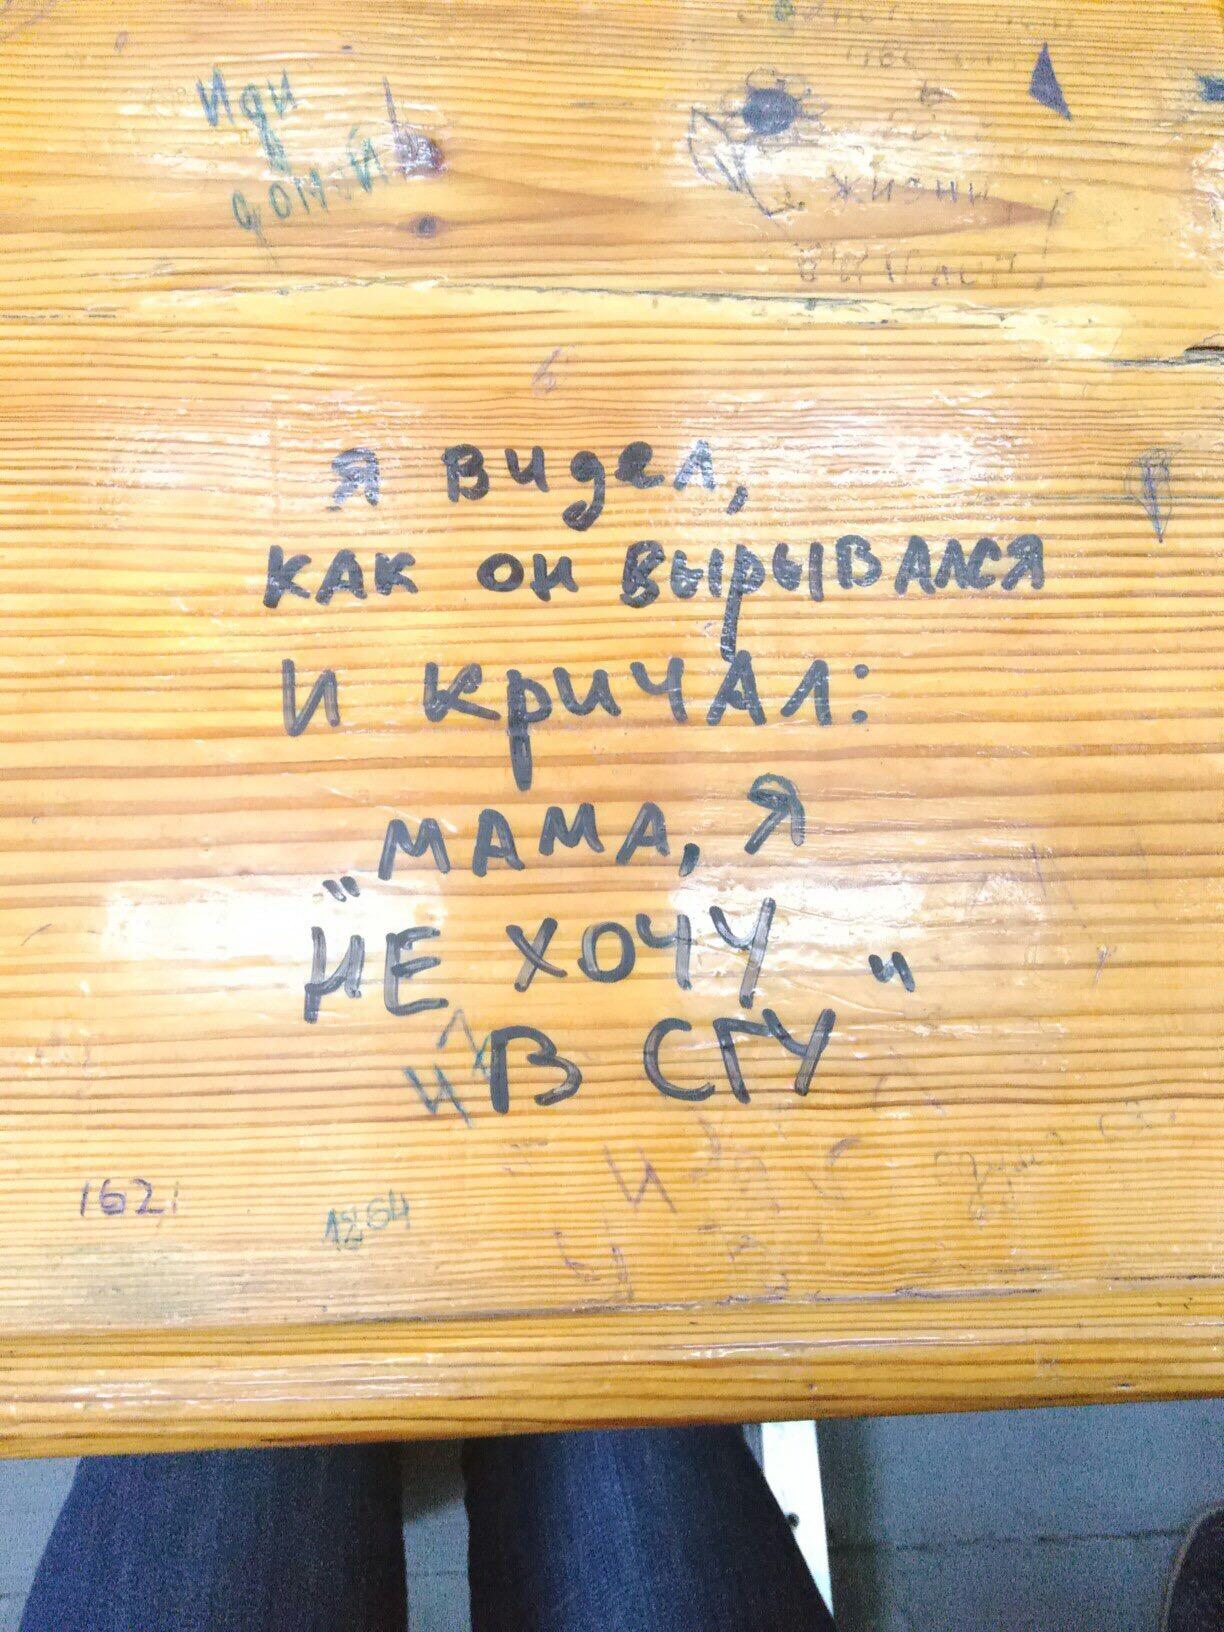 Иди
домой!
жизни
я видел,
как он вырывался
и кричал:
„мама, я
не хочу
в СГУ"
1621
1264